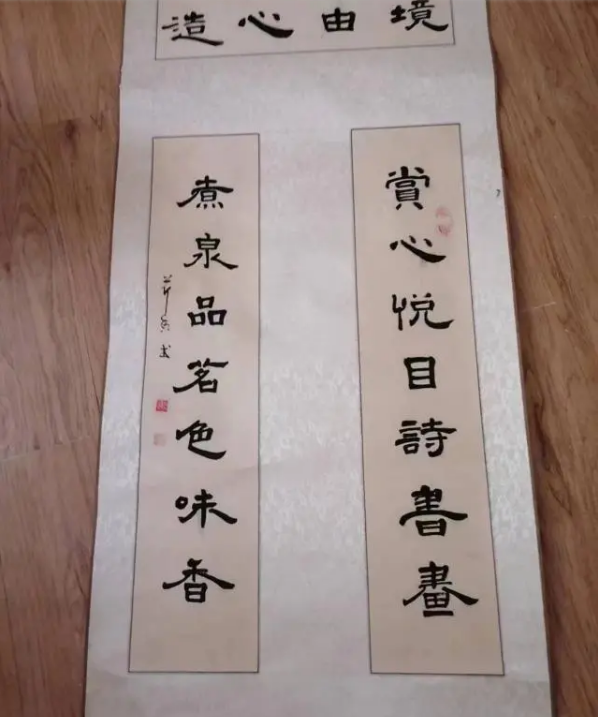 境由心造
賞心悦目詩書畫
煮泉品茗色味香